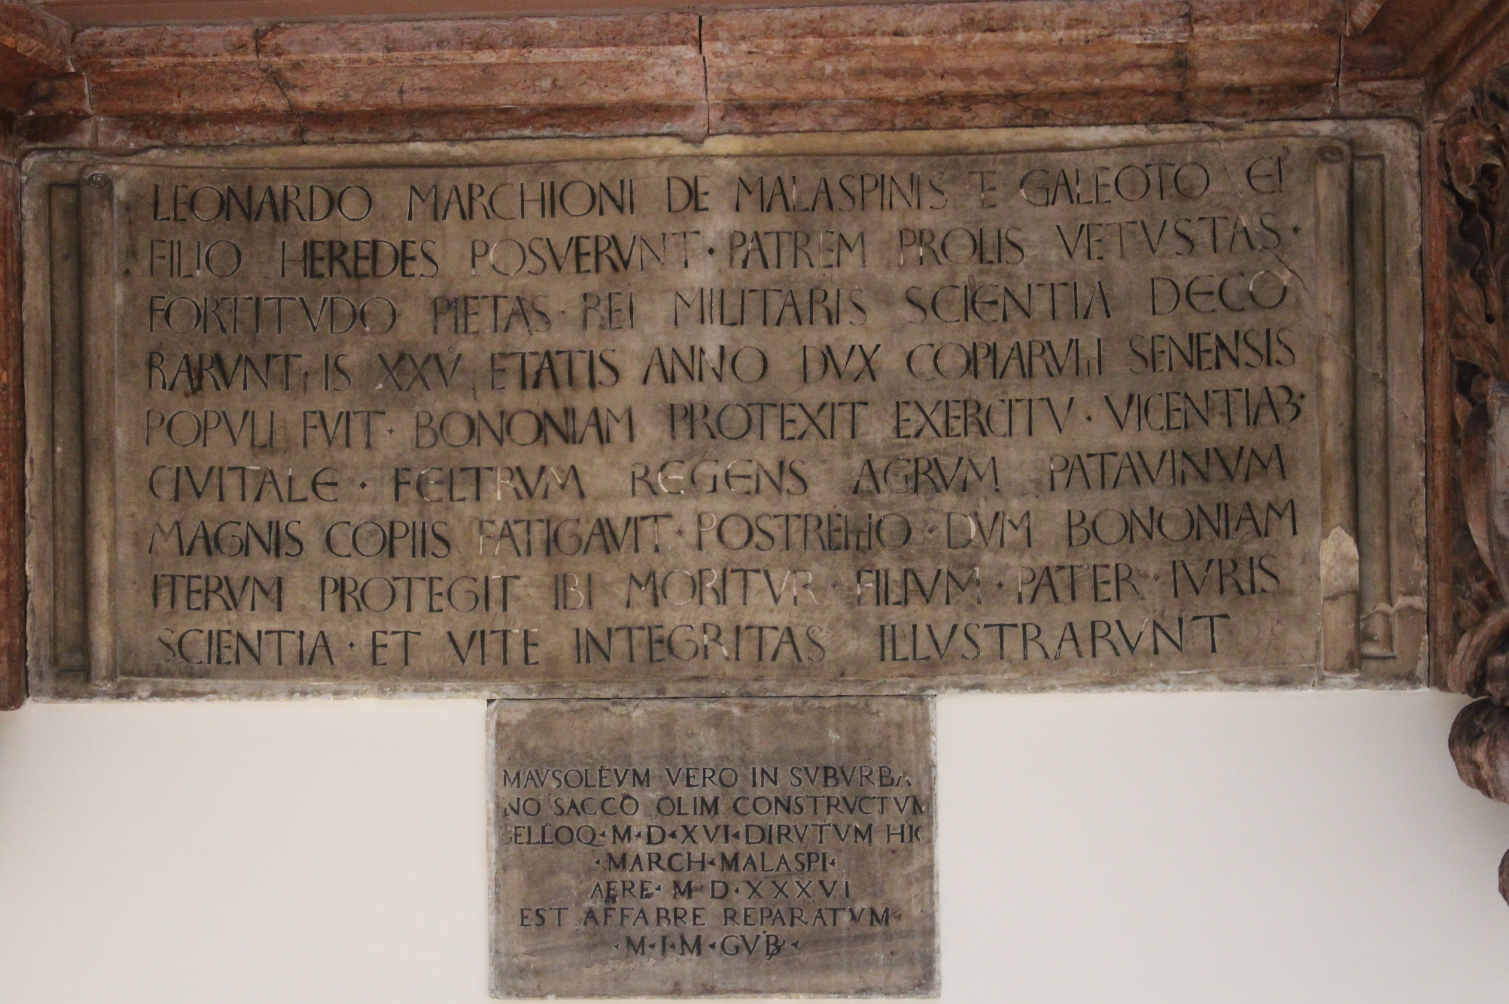 LEONARDO MARCHIONI DE MALASPINIS E GALEOTO EI
FILIO HEREDES POSVERVNT · PATREM PROLIS VETVSTAS ·
FORTITVDO PIETAS · REI MILITARIS SCIENTIA DECO
RARVNT · IS XXV ETATIS ANNO DVX COPIARVM SENENSIS
POPVLI FVIT · BONONIAM PROTEXIT EXERCITV · VICENTIAB ·
CIVITALE · FELTRVM REGENS AGRVM PATAVINVM
MAGNIS COPIIS FATIGAVIT · POSTREMO · DVM BONONIAM
ITERVM PROTEGIT IBI MORITVR · FILIVM · PATER · IVRIS
SCIENTIA · ET VITE INTEGRITAS ILLVSTRARVNT
MAVSOLEVM VERO IN SVBVRBA
NO SACCO OLIM CONSTRVCTVM
BELLOQ · M · D · XVI · DIRVTVM HIC
· MARCH · MALASPI ·
AERE · M D · XXXVI
EST AFFABRE REPARATVM
· M · I · M · GVB ·